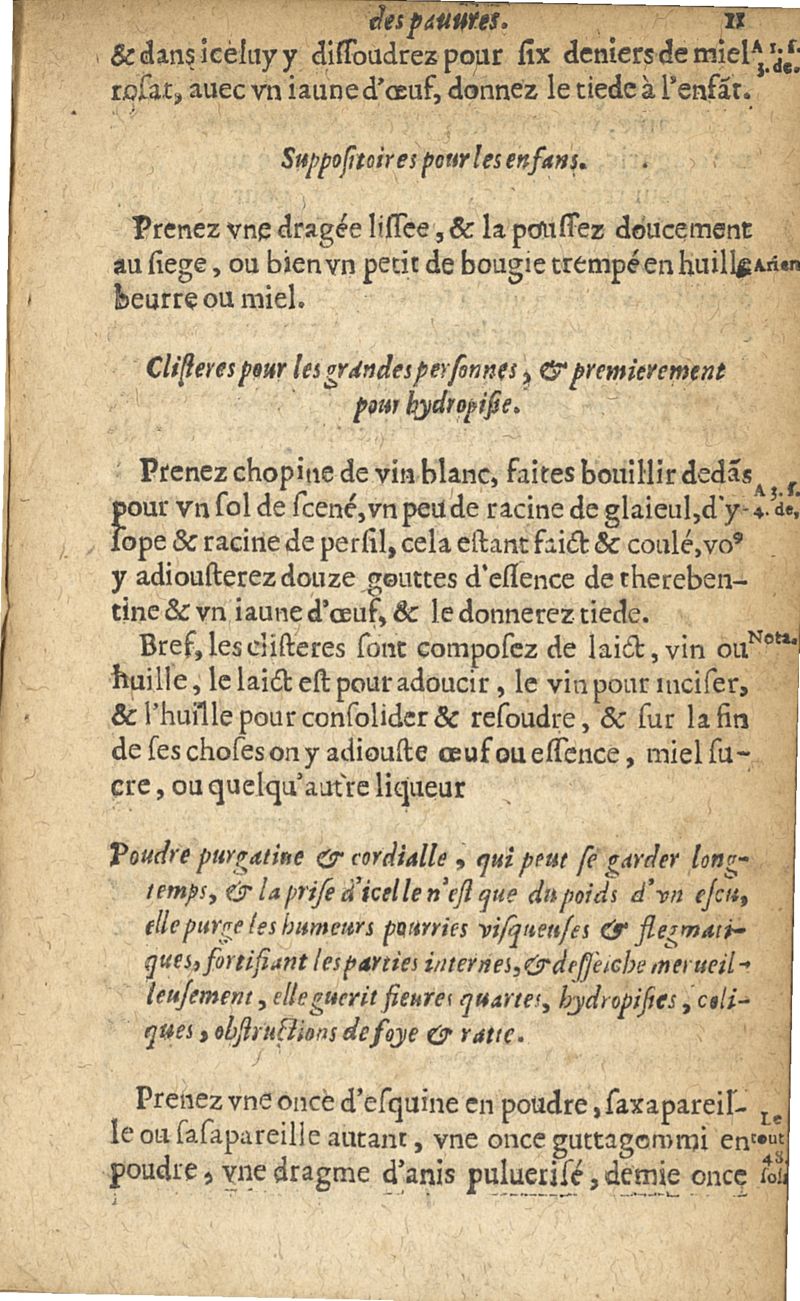 des pauures. 11
& dans iceluy y dissoudrez pour six deniers de miel A 1. s.
3. de.
rosat, auec vn iaune d'œuf, donnez le tiede à l'enfãt.
Suppositoires pour les enfans.
Prenez vne dragée lissee, & la poussez doucement
au siege, ou bien vn petit de bougie trempé en huille Arien
beurre ou miel.
Clisteres pour les grandes personnes, & premierement
pour hydropisie.
Prenez chopine de vin blanc, faites bouillir dedãs
A 3. s.
pour vn sol de scené, vn peu de racine de glaieul, d'y- 4. de,
sope & racine de persil, cela estant faict & coulé, voꝰ
y adiousterez douze gouttes d'essence de thereben-
tine & vn iaune d'œuf, & le donnerez tiede.
Bref, les clisteres sont composez de laict, vin ou Nota.
huille, le laict est pour adoucir, le vin pour inciser,
& l'huille pour consolider & resoudre, & sur la fin
de ses choses on y adiouste œuf ou essence, miel su-
cre, ou quelqu'autre liqueur
Poudre purgatiue & cordialle, qui peut se garder long-
temps, & la prise d'icelle n'est que du poids d'vn escu,
elle purge les humeurs pourries visqueuses & flegmati-
ques, fortifiant les parties internes, & desseiche merueil-
leusement, elle guerit fieures quartes, hydropisies, coli-
ques, obstructions de foye & ratte.
Prenez vne once d'esquine en poudre, saxapareil- Le
le ou sasapareille autant, vne once guttagommi en tout
48.
poudre, vne dragme d'anis puluerisé, demie once sols